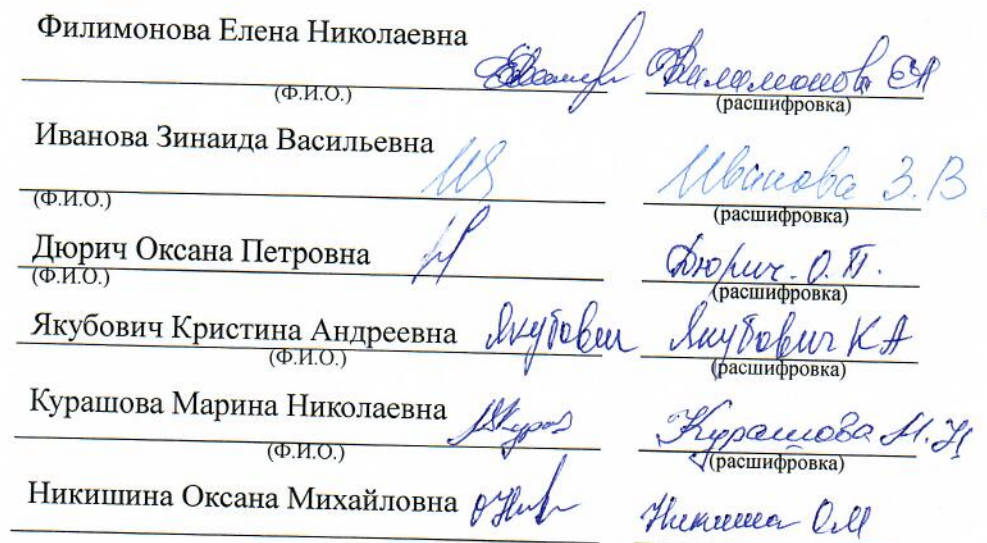 Филимонова Елена Николаевна
Филимонова ЕН
(Ф.И.О.) (расшифровка)
Иванова Зинаида Васильевна
Иванова З.В
(Ф.И.О.) (расшифровка)
Дюрич Оксана Петровна Дюрич. О.П.
(Ф.И.О.) (расшифровка)
Якубович Кристина Андреевна Якубович Якубович КА
(Ф.И.О.) (расшифровка)
Курашова Марина Николаевна
Курашова М.Н
(Ф.И.О.) (расшифровка)
Никишина Оксана Михайловна
ОМ